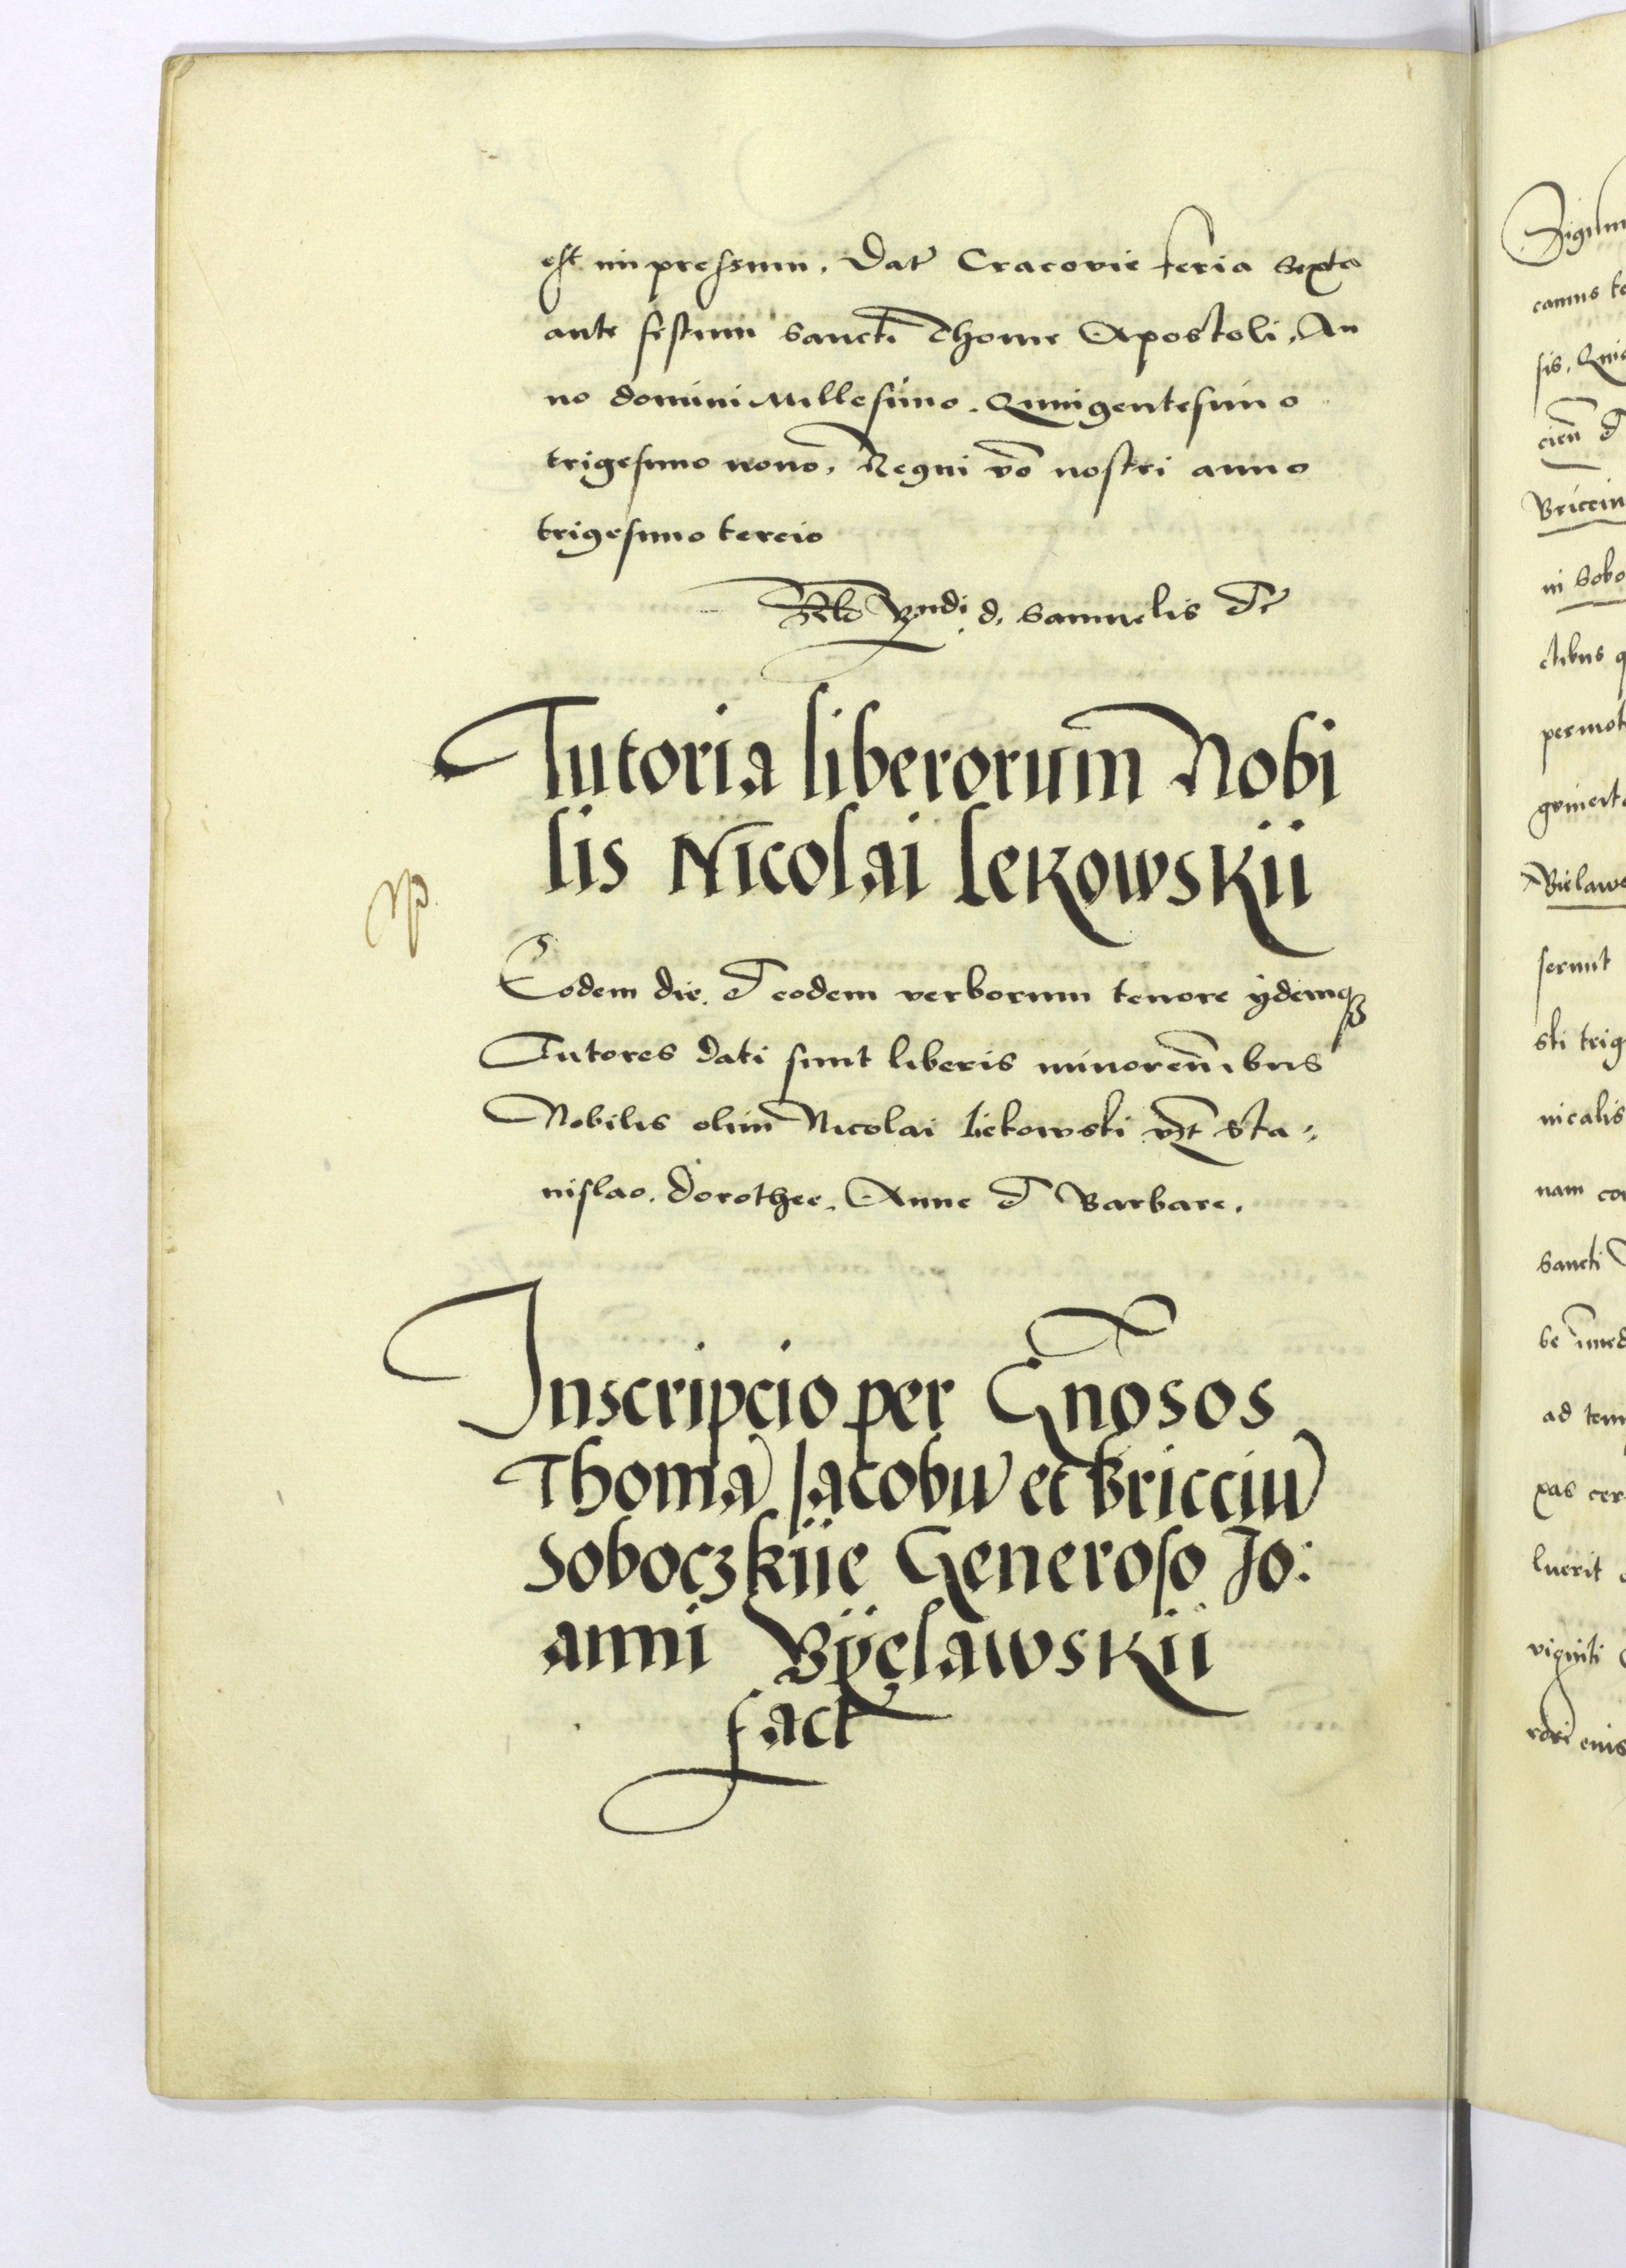 est impressum. Dat Cracovie feria Sexta
ante festum Sancti Thome Apostoli, An
no domini Millesimo. Quingentesimo
trigesimo nono. Regni vo nostri anno
trigesimo tercio
d. Samuelis Et
Tutoria liberorum Nobi
lis Nicolai Lekowskii
Eodem die. Et eodem verborum tenore ydemqz
Tutores dati sunt liberis minorenibus
Nobilis olim Nicolai Liekowski vzt Sta:
nislao. Dorothee. Anne Et Barbare.
Inscripcio per Gnosos
Thoma Jacobu et Bricciu
Soboczkiie Generoso Jo:
anni Byelawskii
fact
Sigism
camus
sis. Qui
cien Et
Bricciu
ni Sobo
ctibus q
permot
Bielaws
serunt
sti trig
nicalis
nam con
Sancti
be
ad tem
xas cer
luerit
viginti
enis